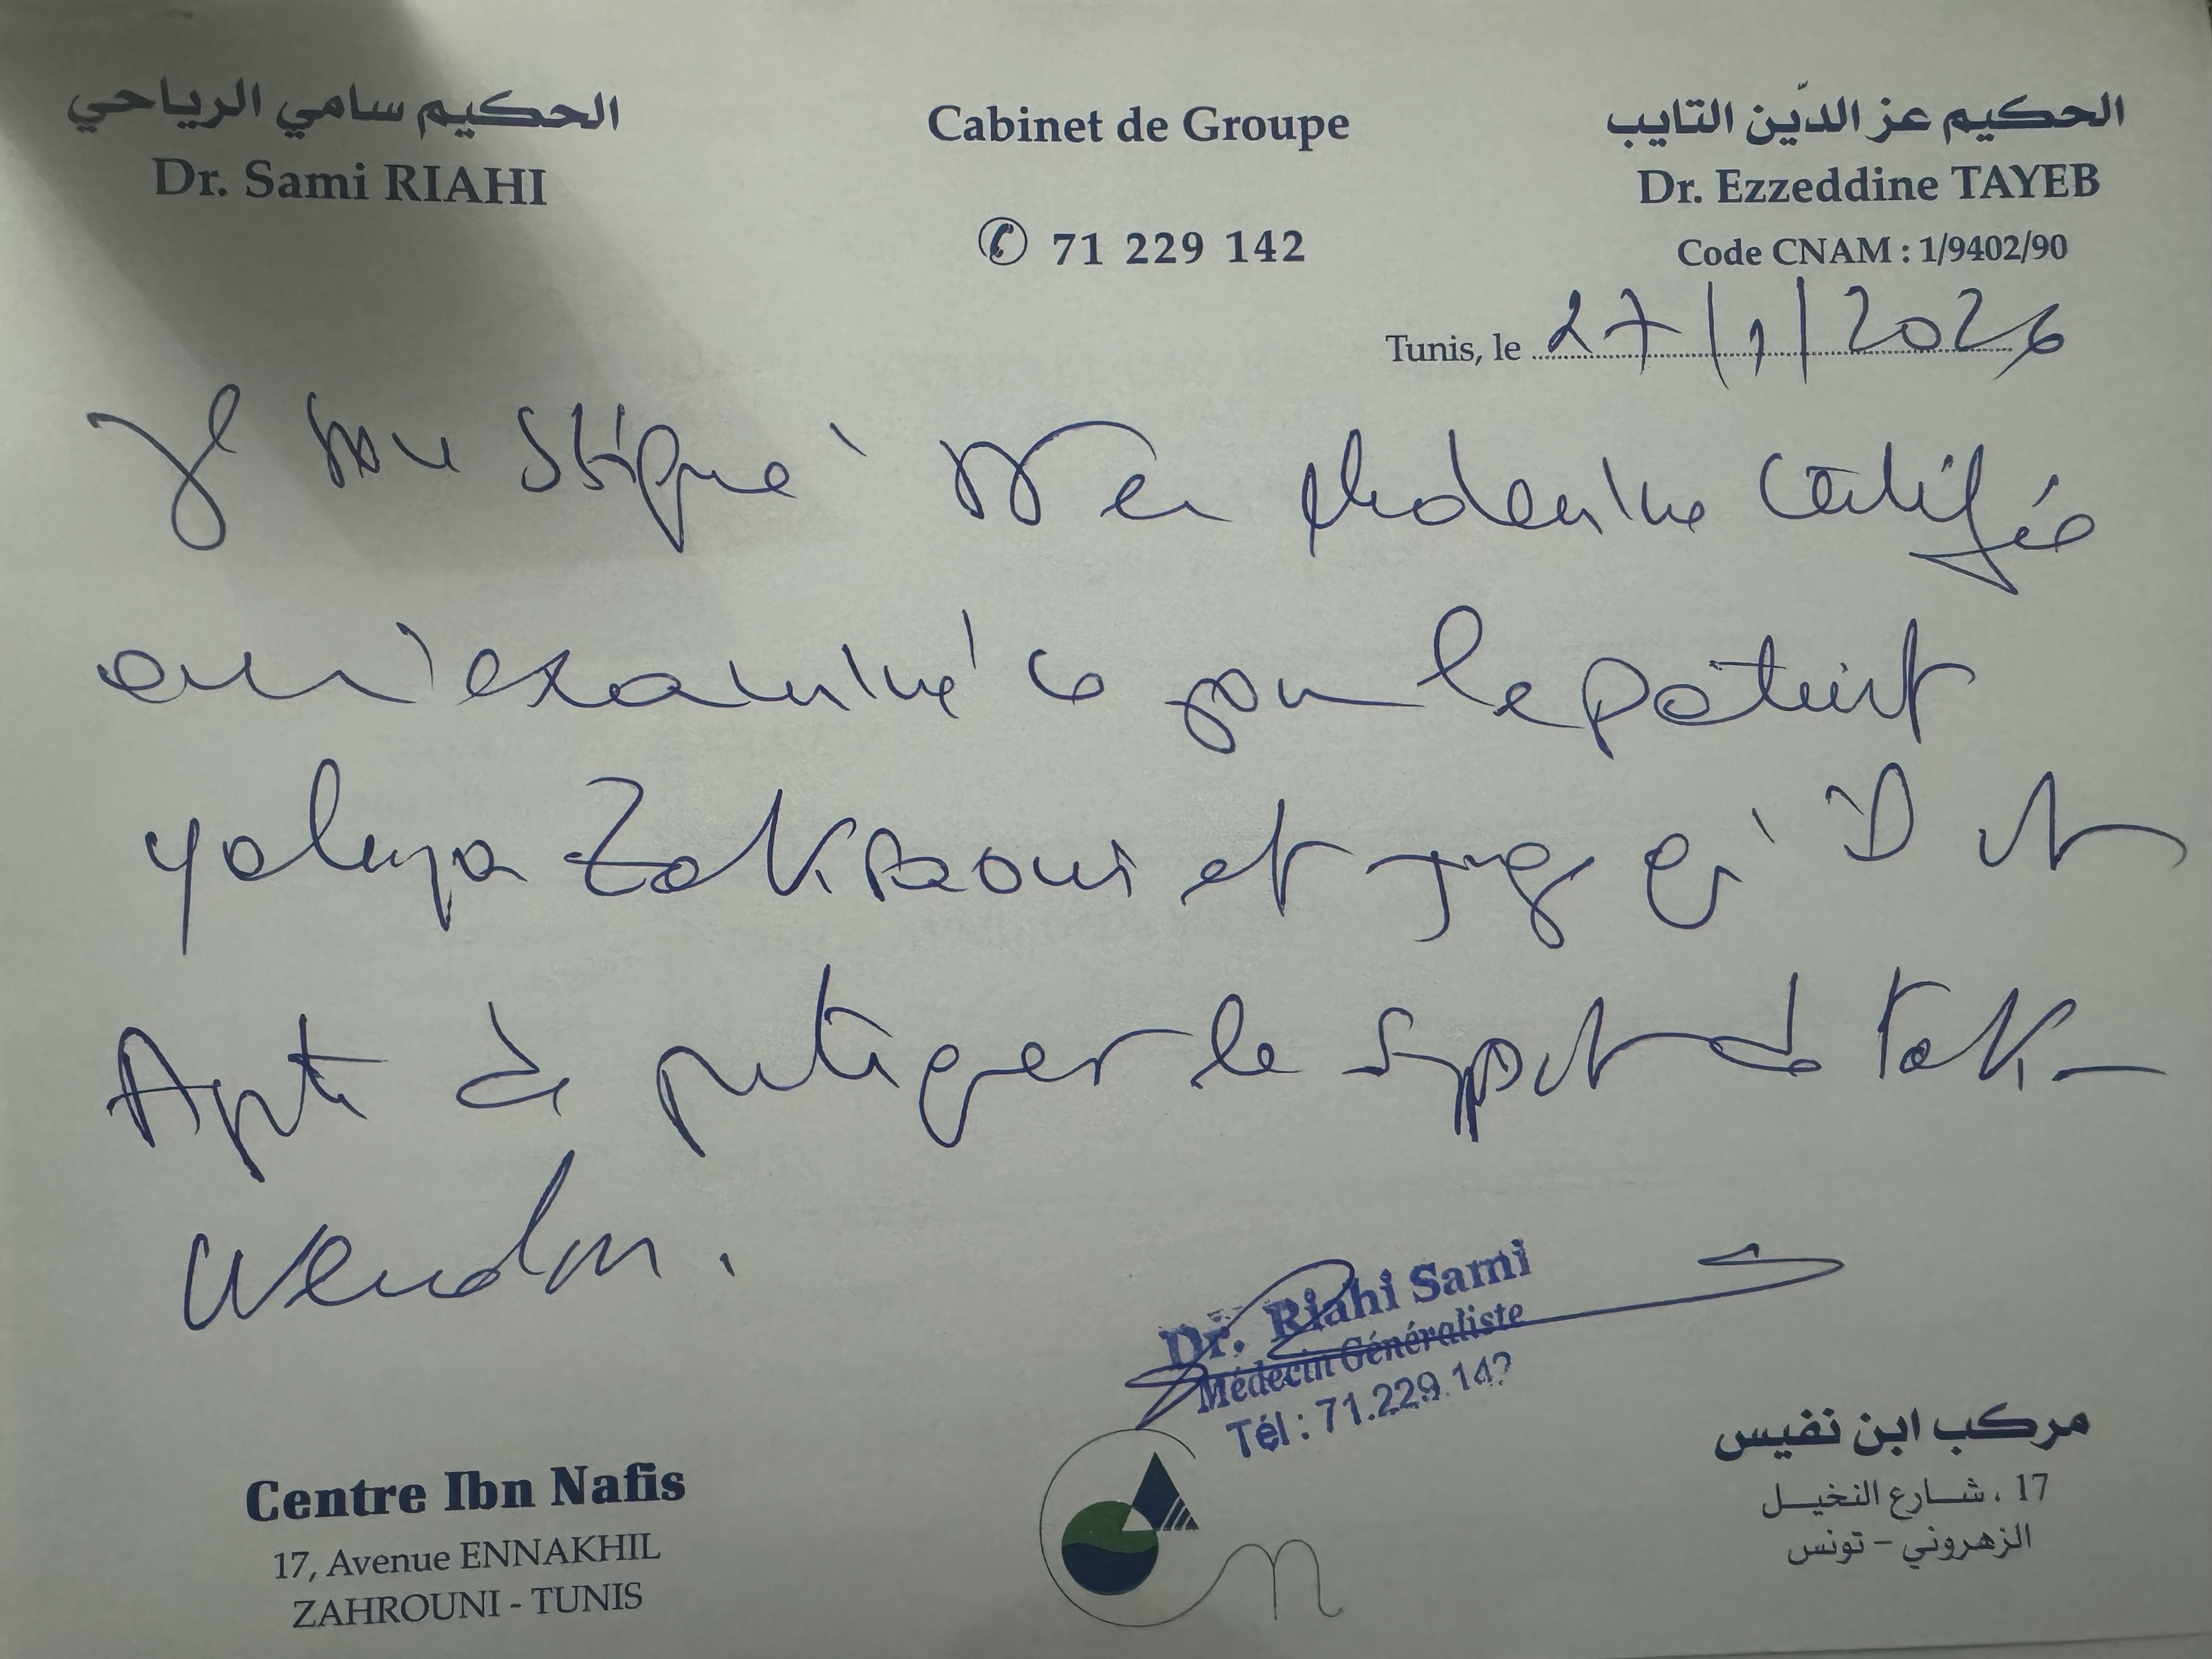 الحكيم سامي الرياحي
Dr. Sami RIAHI
Cabinet de Groupe
71 229 142
الحكيم عز الدّين التايب
Dr. Ezzeddine TAYEB
Code CNAM : 1/9402/90
Tunis, le 27/1/2026
Je en Médecine Certifie
examiné ce jour le patient
yahya Zakraoui et juge qu'il est
Apte à pratiquer le sport de Taek-
wendo.
Dr. Riahi Sami
Médecin Généraliste
Tél : 71.229.142
Centre Ibn Nafis
17, Avenue ENNAKHIL
ZAHROUNI - TUNIS
مركب ابن نفيس
17 ، شارع النخيل
الزهروني - تونس